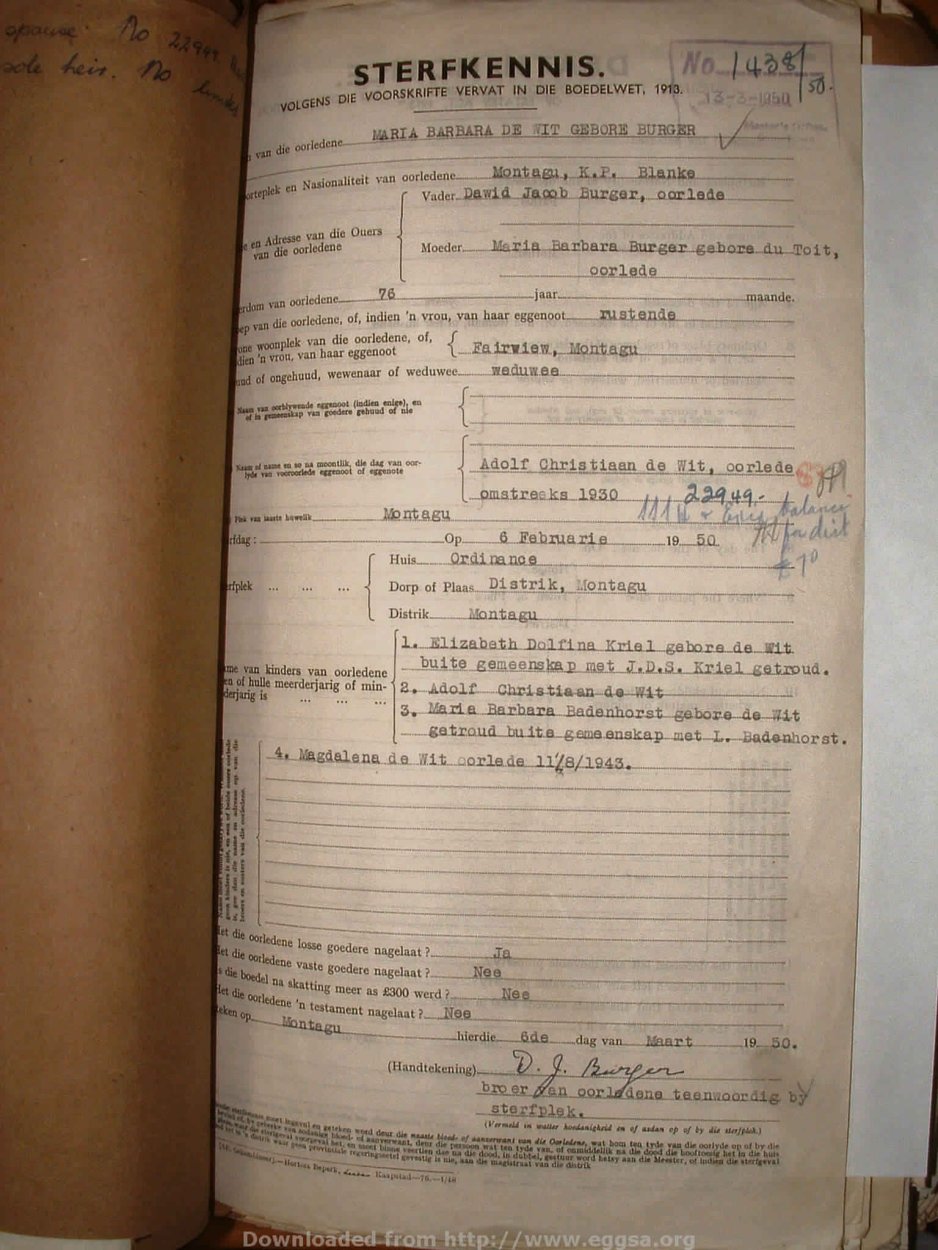 opause No 22949
sole heir. No
STERFKENNIS.
VOLGENS DIE VOORSKRIFTE VERVAT IN DIE BOEDELWET, 1913.
No 1438/50.
13-3-1950
van die oorledene MARIA BARBARA DE WIT GEBORE BURGER
orteplek en Nasionaliteit van oorledene Montagu, K.P. Blanke
Vader Dawid Jacob Burger, oorlede
e en Adresse van die Ouers
van die oorledene
Moeder Maria Barbara Burger gebore du Toit,
oorlede
erdom van oorledene 76 jaar maande.
ep van die oorledene, of, indien 'n vrou, van haar eggenoot rustende
one woonplek van die oorledene, of,
dien 'n vrou, van haar eggenoot
Fairwiew, Montagu
uud of ongehuud, wewenaar of weduwee weduwee
Naam van oorblywende eggenoot (indien enige), en
of in gemeenskap van goedere gehuud of nie
Naam of name en so na moontlik, die dag van oor-
lyde van vooroorlede eggenoot of eggenote
Adolf Christiaan de Wit, oorlede
omstreeks 1930 22949.-
Plek van laaste huwelik Montagu
balance
rfdag: Op 6 Februarie 19 50
£70
Huis Ordinance
erfplek ... ... ... Dorp of Plaas Distrik, Montagu
Distrik Montagu
me van kinders van oorledene
en of hulle meerderjarig of min-
derjarig is ... ... ...
1. Elizabeth Dolfina Kriel gebore de Wit
buite gemeenskap met J.D.S. Kriel getroud.
2. Adolf Christiaan de Wit
3. Maria Barbara Badenhorst gebore de Wit
getroud buite gemeenskap met L. Badenhorst.
4. Magdalena de Wit oorlede 11/8/1943.
et die oorledene losse goedere nagelaat? Ja
et die oorledene vaste goedere nagelaat? Nee
s die boedel na skatting meer as £300 werd? Nee
et die oorledene 'n testament nagelaat? Nee
teken op Montagu hierdie 6de dag van Maart 19 50.
(Handtekening) D. J. Burger
broer van oorledene teenwoordig by
sterfplek.
(Vermeld in watter hoedanigheid en of aadan op of by die sterfplek.)
Kaapstad—76.—1/48
Downloaded from http://www.eggsa.org